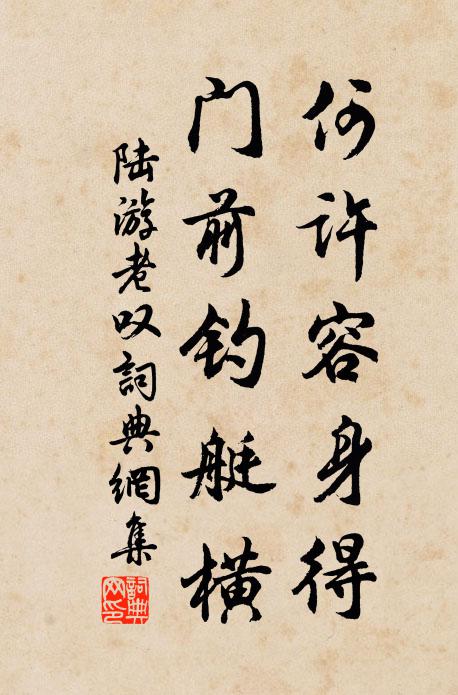 何许容身得
门前钓艇横
陆游老叹词典網集
詞典网印